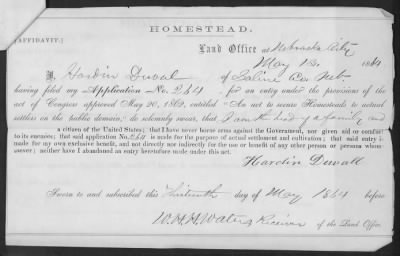 HOMESTEAD.
(AFFIDAVIT.)
Land Office at Nebraska City
May 13, 1864
I, Hardin Duvall of Saline Co. Neb.
having filed my Application No. 264 for an entry under the provisions of the
act of Congress approved May 20, 1862, entitled "An act to secure Homesteads to actual
settlers on the public domain," do solemnly swear, that I am the head of a family, and
a citizen of the United States; that I have never borne arms against the Government, nor given aid or comfort
to its enemies; that said application No. 264 is made for the purpose of actual settlement and cultivation; that said entry is
made for my own exclusive benefit, and not directly nor indirectly for the use or benefit of any other person or persons whom-
soever; neither have I abandoned an entry heretofore made under this act.
Hardin Duvall
Sworn to and subscribed this thirteenth day of May 1864 before
W.H.H. Waters Receiver of the Land Office.